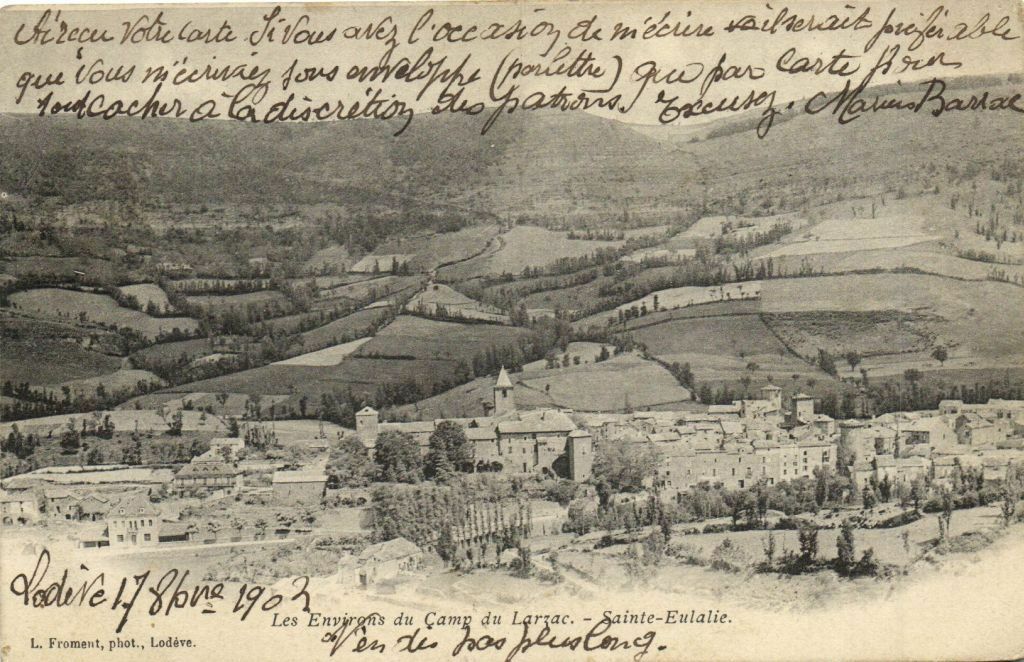 Ai reçu Votre carte Si Vous avez l'occasion de m'écrire il serait préférable
que Vous m'écriviez sous enveloppe (par lettre) que par carte pour
tout cacher à la discrétion des patrons. Excusez. Marius Barrac
Lodève 17 8bre 1903
Les Environs du Camp du Larzac. - Sainte-Eulalie.
L. Froment, phot., Lodève.
V'en dis pas plus long.